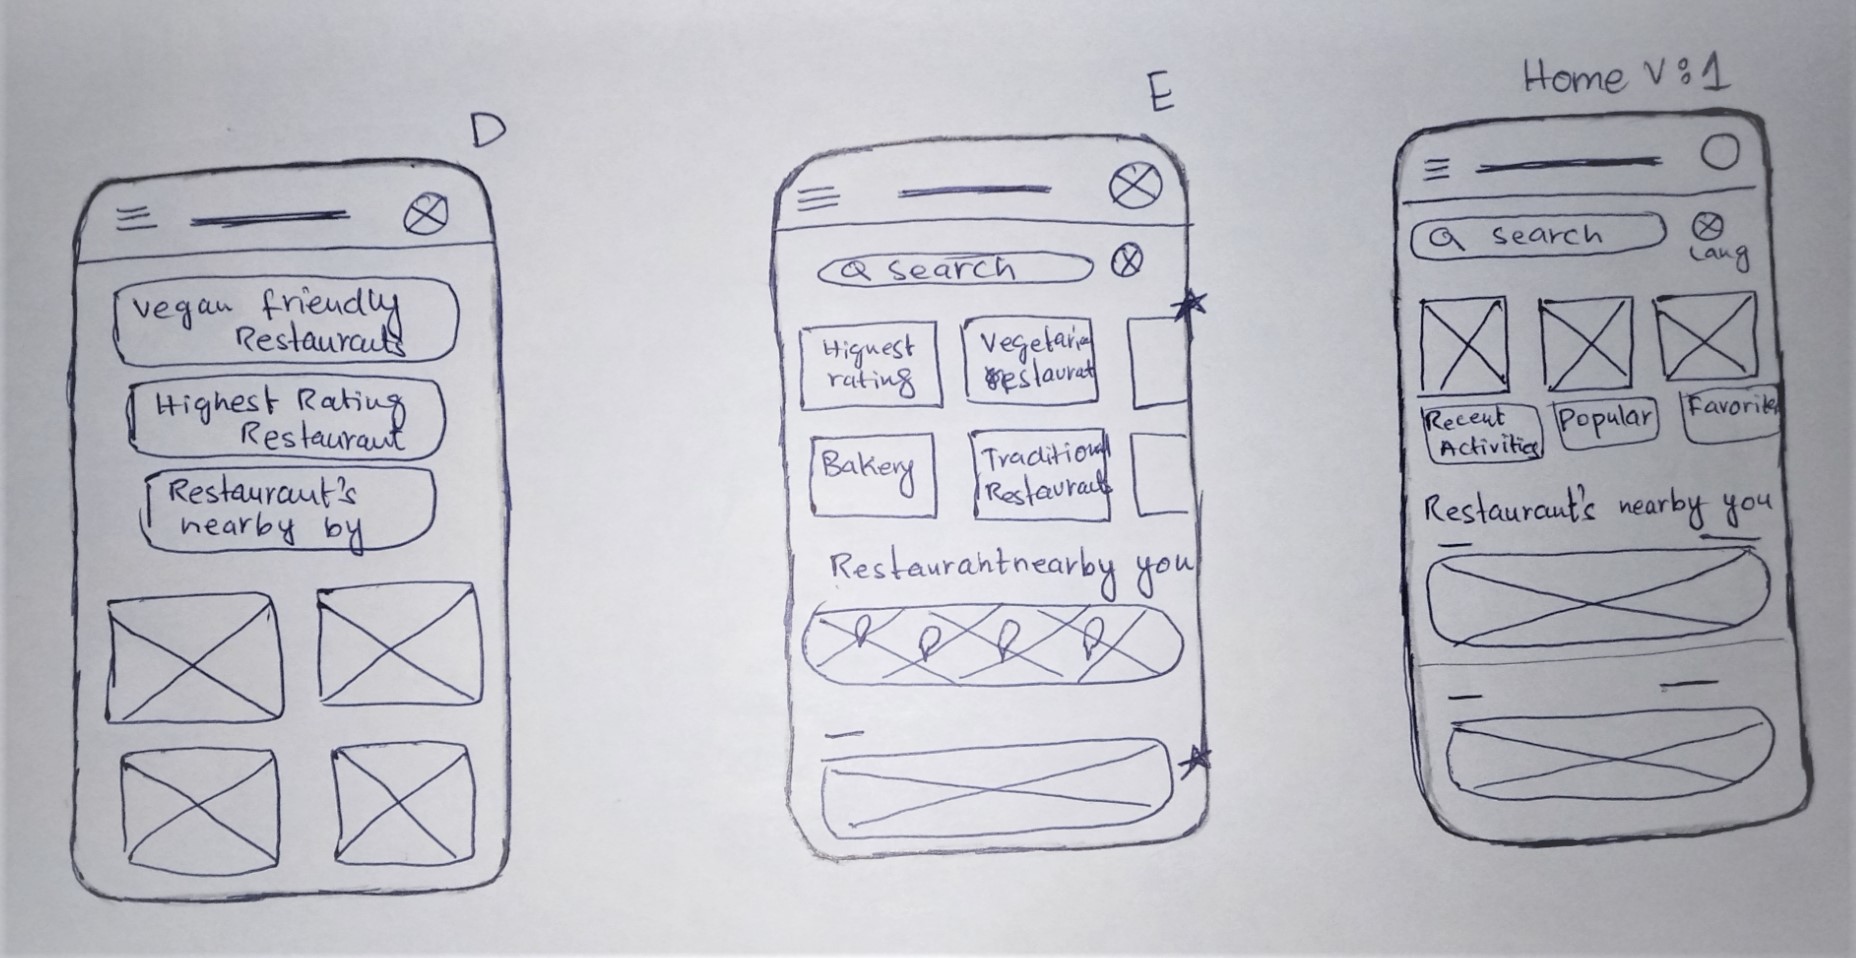 D
vegan friendly
Restaurants
Highest Rating
Restaurant
Restaurant's
nearby by
E
search
Highest
rating
Vegetarian
restaurat
Bakery
Traditional
Restaurant
Restaurant nearby you
Home V:1
search
Lang
Recent
Activities
Popular
Favorites
Restaurant's nearby you